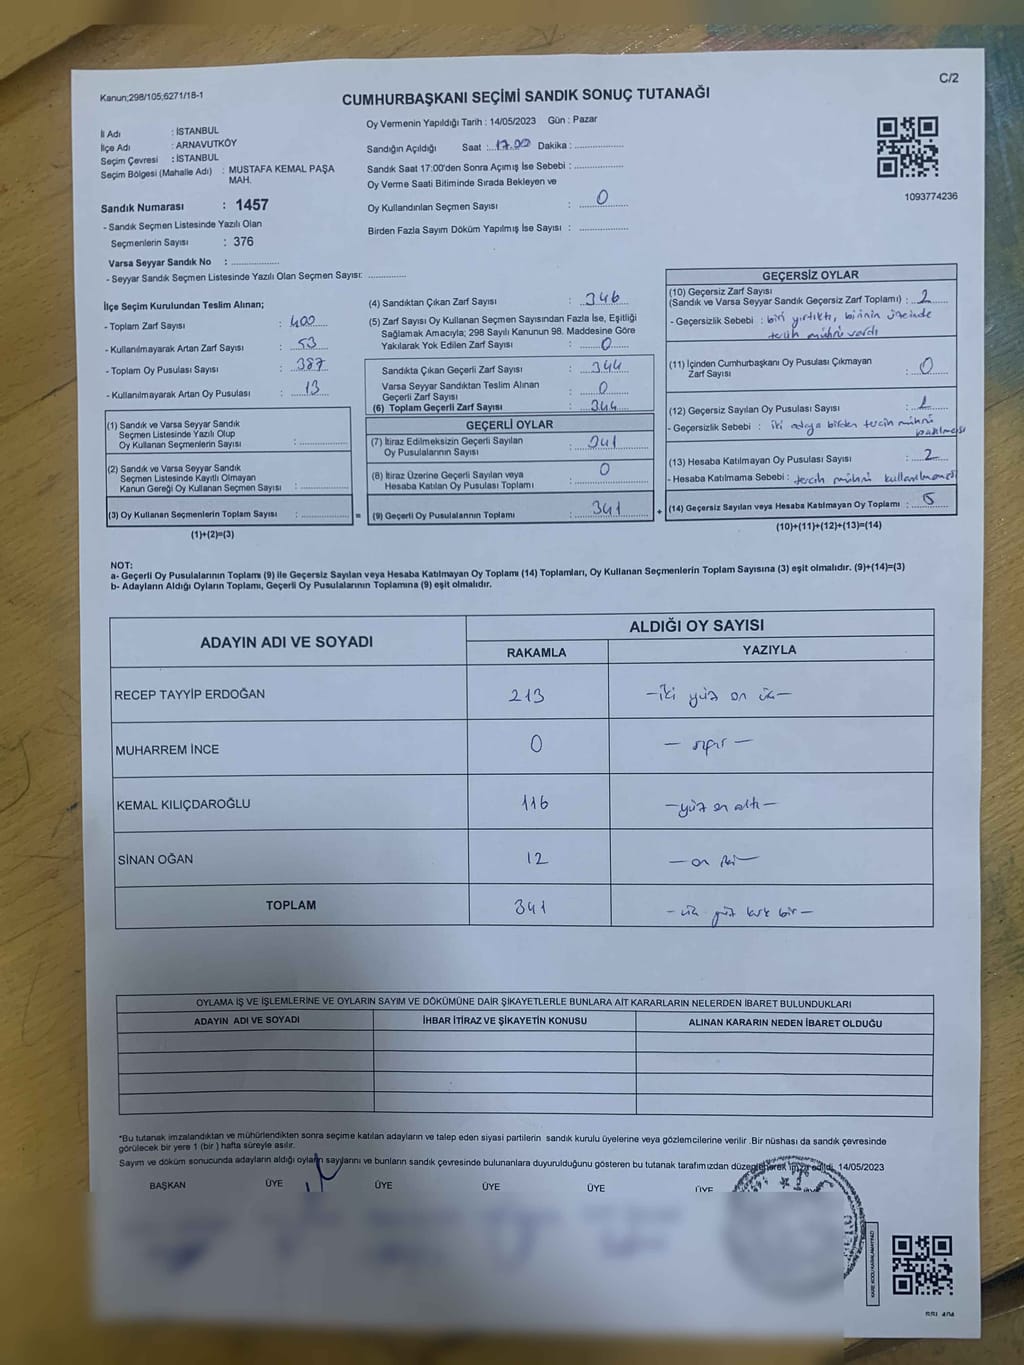 C/2
Kanun;298/105,6271/18-1
CUMHURBAŞKANI SEÇİMİ SANDIK SONUÇ TUTANAĞI
İl Adı : İSTANBUL
İlçe Adı : ARNAVUTKÖY
Seçim Çevresi : İSTANBUL
Seçim Bölgesi (Mahalle Adı) : MUSTAFA KEMAL PAŞA
MAH.
Sandık Numarası : 1457
- Sandık Seçmen Listesinde Yazılı Olan
Seçmenlerin Sayısı : 376
Varsa Seyyar Sandık No : ................
- Seyyar Sandık Seçmen Listesinde Yazılı Olan Seçmen Sayısı: ............
Oy Vermenin Yapıldığı Tarih : 14/05/2023 Gün : Pazar
Sandığın Açıldığı Saat : 17.00 Dakika : ................
Sandık Saat 17:00'den Sonra Açımış İse Sebebi : ................
Oy Verme Saati Bitiminde Sırada Bekleyen ve
Oy Kullandırılan Seçmen Sayısı : 0
Birden Fazla Sayım Döküm Yapılmış İse Sayısı : ................
1093774236
İlçe Seçim Kurulundan Teslim Alınan;
- Toplam Zarf Sayısı : 400
- Kullanılmayarak Artan Zarf Sayısı : 53
- Toplam Oy Pusulası Sayısı : 387
- Kullanılmayarak Artan Oy Pusulası : 13
(1) Sandık ve Varsa Seyyar Sandık
Seçmen Listesinde Yazılı Olup
Oy Kullanan Seçmenlerin Sayısı : ................
(2) Sandık ve Varsa Seyyar Sandık
Seçmen Listesinde Kayıtlı Olmayan
Kanun Gereği Oy Kullanan Seçmen Sayısı : ................
(3) Oy Kullanan Seçmenlerin Toplam Sayısı : ................ =
(1)+(2)=(3)
(4) Sandıktan Çıkan Zarf Sayısı : 346
(5) Zarf Sayısı Oy Kullanan Seçmen Sayısından Fazla İse, Eşitliği
Sağlamak Amacıyla; 298 Sayılı Kanunun 98. Maddesine Göre
Yakılarak Yok Edilen Zarf Sayısı : 0
Sandıkta Çıkan Geçerli Zarf Sayısı : 344
Varsa Seyyar Sandıktan Teslim Alınan
Geçerli Zarf Sayısı : 0
(6) Toplam Geçerli Zarf Sayısı : 344
GEÇERLİ OYLAR
(7) İtiraz Edilmeksizin Geçerli Sayılan
Oy Pusulalarının Sayısı : 341
(8) İtiraz Üzerine Geçerli Sayılan veya
Hesaba Katılan Oy Pusulası Toplamı : 0
(9) Geçerli Oy Pusulalarının Toplamı : 341 +
GEÇERSİZ OYLAR
(10) Geçersiz Zarf Sayısı
(Sandık ve Varsa Seyyar Sandık Geçersiz Zarf Toplamı) : 2
- Geçersizlik Sebebi : biri yırtıktı, birinin üzerinde
tercih mührü vardı
(11) İçinden Cumhurbaşkanı Oy Pusulası Çıkmayan
Zarf Sayısı : 0
(12) Geçersiz Sayılan Oy Pusulası Sayısı : 1
- Geçersizlik Sebebi : iki adaya birden tercih mührü
basılması
(13) Hesaba Katılmayan Oy Pusulası Sayısı : 2
- Hesaba Katılmama Sebebi : tercih mührü kullanılmaması
(14) Geçersiz Sayılan veya Hesaba Katılmayan Oy Toplamı : 5
(10)+(11)+(12)+(13)=(14)
NOT:
a- Geçerli Oy Pusulalarının Toplamı (9) ile Geçersiz Sayılan veya Hesaba Katılmayan Oy Toplamı (14) Toplamları, Oy Kullanan Seçmenlerin Toplam Sayısına (3) eşit olmalıdır. (9)+(14)=(3)
b- Adayların Aldığı Oyların Toplamı, Geçerli Oy Pusulalarının Toplamına (9) eşit olmalıdır.
ADAYIN ADI VE SOYADI ALDIĞI OY SAYISI
RAKAMLA YAZIYLA
RECEP TAYYİP ERDOĞAN 213 - iki yüz on üç -
MUHARREM İNCE 0 - sıfır -
KEMAL KILIÇDAROĞLU 116 - yüz on altı -
SİNAN OĞAN 12 - on iki -
TOPLAM 341 - üç yüz kırk bir -
OYLAMA İŞ VE İŞLEMLERİNE VE OYLARIN SAYIM VE DÖKÜMÜNE DAİR ŞİKAYETLERLE BUNLARA AİT KARARLARIN NELERDEN İBARET BULUNDUKLARI
ADAYIN ADI VE SOYADI İHBAR İTİRAZ VE ŞİKAYETİN KONUSU ALINAN KARARIN NEDEN İBARET OLDUĞU
*Bu tutanak imzalandıktan ve mühürlendikten sonra seçime katılan adayların ve talep eden siyasi partilerin sandık kurulu üyelerine veya gözlemcilerine verilir .Bir nüshası da sandık çevresinde
görülecek bir yere 1 (bir ) hafta süreyle asılır.
Sayım ve döküm sonucunda adayların aldığı oyların sayılarını ve bunların sandık çevresinde bulunanlara duyurulduğunu gösteren bu tutanak tarafımızdan düzenlenerek imza edildi. 14/05/2023
BAŞKAN ÜYE ÜYE ÜYE ÜYE ÜYE